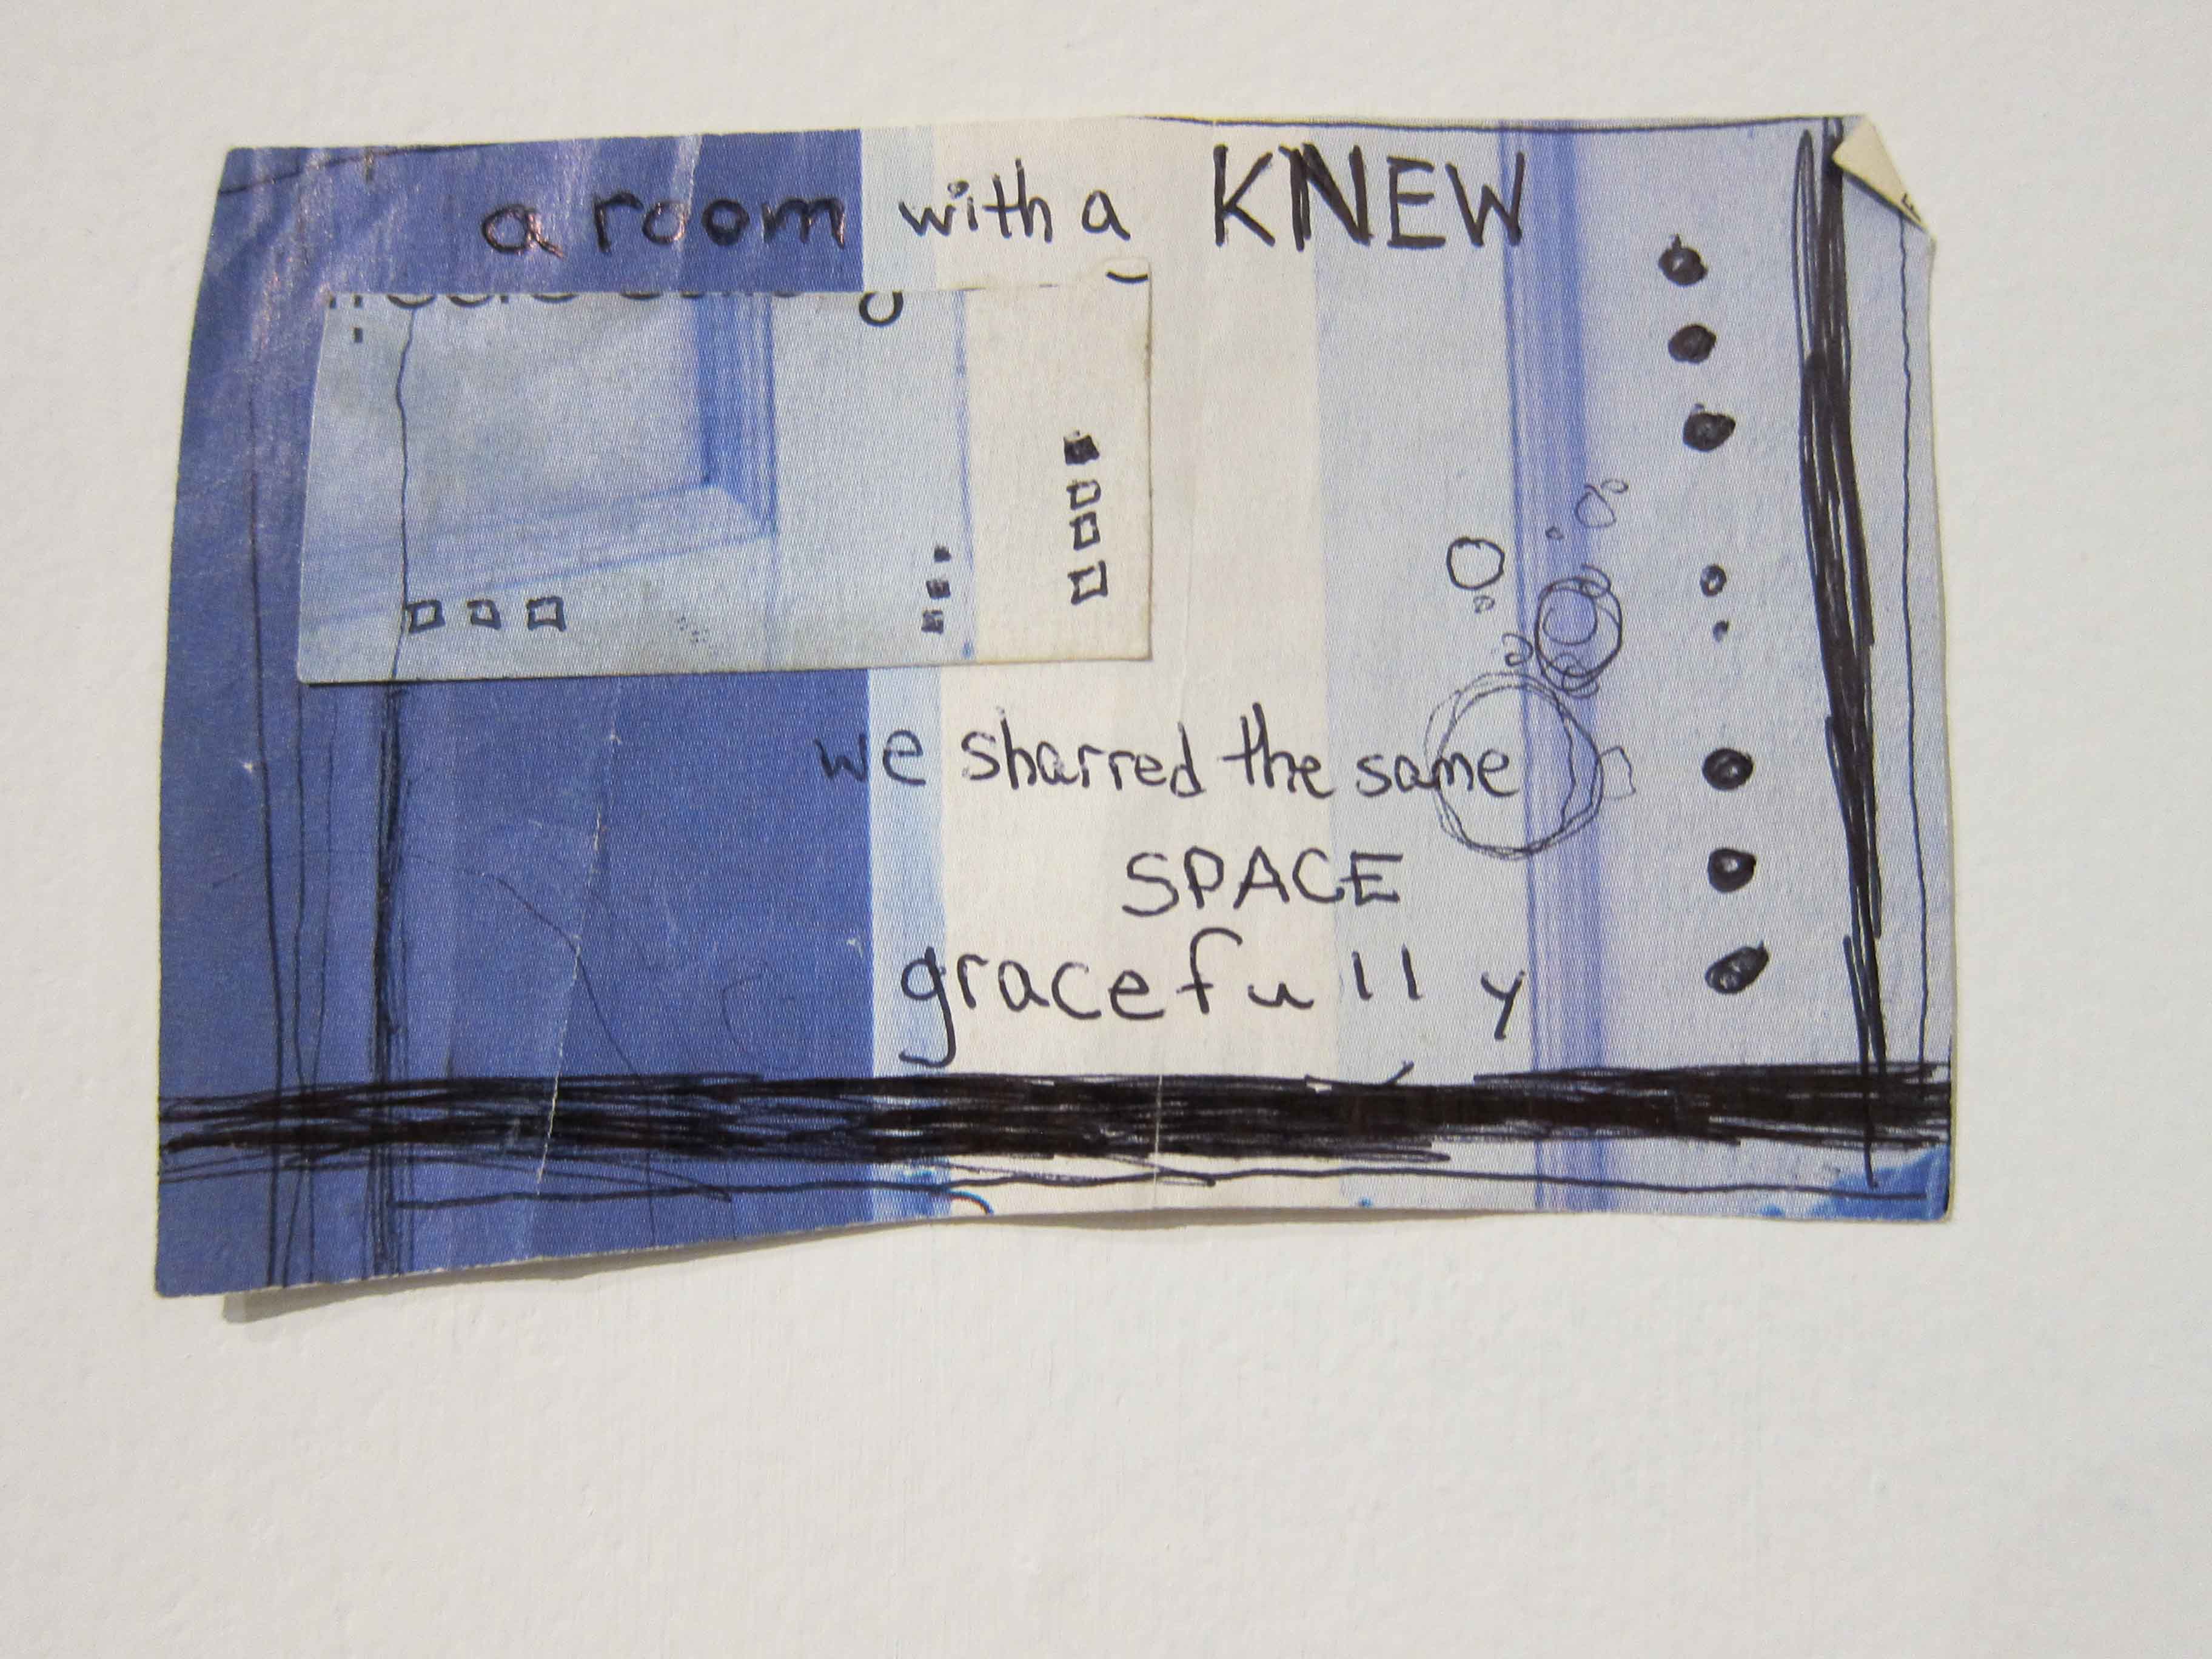 a room with a KNEW
we sharred the same
SPACE
gracefully